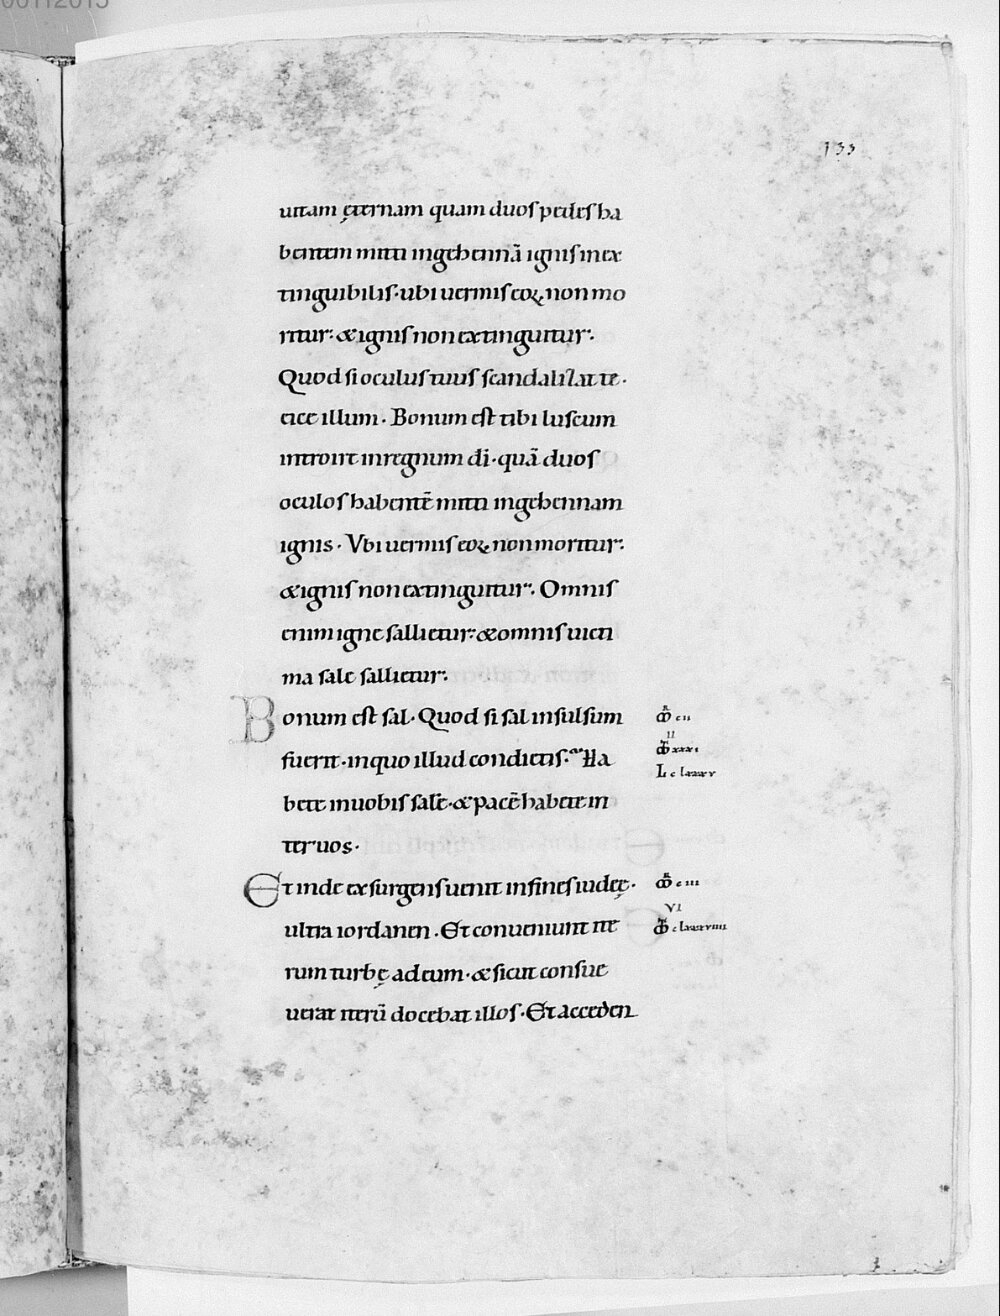 133
uitam ęternam quam duos pedes ha
bentem mitti in gehennā ignis inex
tinguibilis · ubi uermis eoꝝ non mo
ritur: & ignis non extinguitur:.
Quod si oculus tuus scandalizat te ·
eice illum · Bonum est tibi luscum
introire in regnum dī · quā duos
oculos habentē mitti in gehennam
ignis · Vbi uermis eoꝝ non moritur:
& ignis non extinguitur. Omnis
enim igne sallietur: & omnis uicti
ma sale sallietur:
Bonum est sal · Quod si sal insulsum
fuerit · in quo illud condietis · Ha
bete in uobis sale · & pacē habete in
ter uos ·
Et inde exsurgens uenit in fines iudeę ·
ultra iordanen · Et conueniunt ite
rum turbę ad eum · & sicut consue
uerat iterū docebat illos · Et acceden
cii
ii
xxxi
L clxxxv
ciii
vi
clxxxviiii